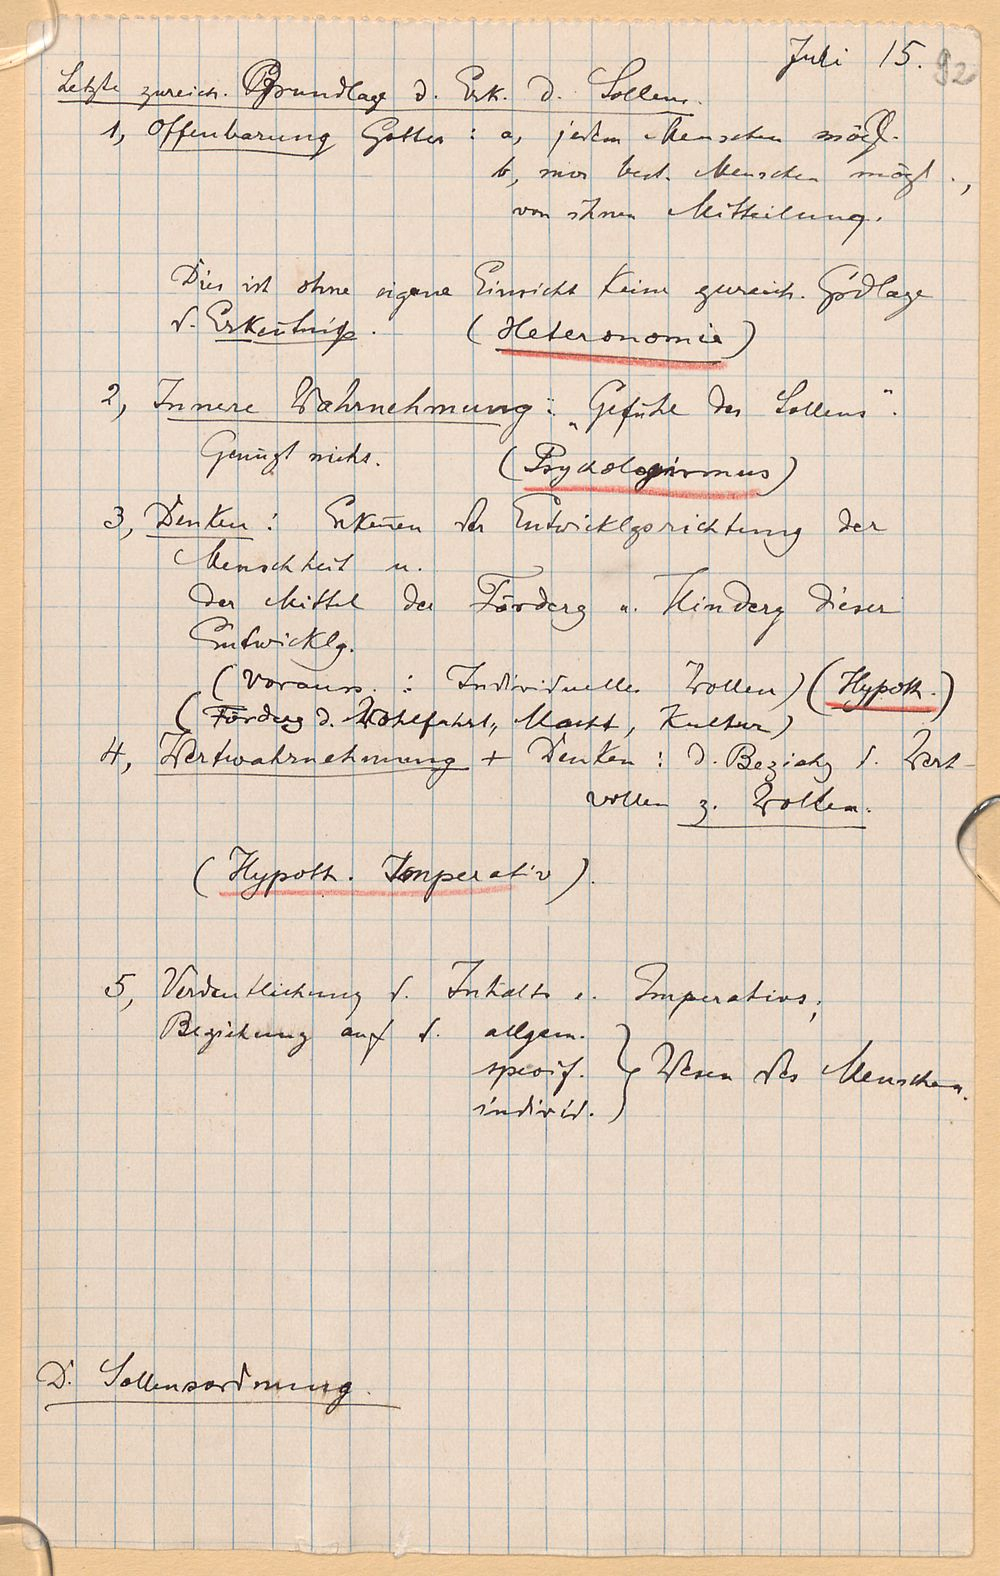 Juli 15. 92
Letzte zureich. Grundlage d. Erk. d. Sollens.
1, Offenbarung Gottes : a, jedem Menschen mögl.
b, nur best. Menschen mögl.,
von ihnen Mitteilung.
Dies ist ohne eigene Einsicht keine zureich. Grdlage
d. Erkenntniß. (Heteronomie)
2, Innere Wahrnehmung: „Gefühl des Sollens".
Genügt nicht. (Psychologismus)
3, Denken: Erkennen der Entwicklgsrichtung der
Menschheit u.
der Mittel der Förderg u. Hinderg dieser
Entwicklg.
(Vorauss. : Individuelles Wollen) (Hypoth.)
(Förderg d. Wohlfahrt, Macht, Kultur)
4, Wertwahrnehmung + Denken : d. Beziehg d. Wert-
vollen z. Wollen.
(Hypoth. Imperativ).
5, Verdeutlichung d. Inhalts d. Imperativs;
Beziehung auf d. allgem.
specif. } Wesen des Menschen.
individ.
D. Sollensordnung.